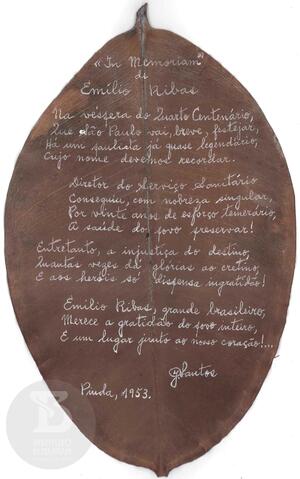 "In Memoriam"
de
Emílio Ribas
Na véspera do Quarto Centenário,
Que São Paulo vai, breve, festejar,
Há um paulista já quase legendário,
Cujo nome devemos recordar.
Diretor do Serviço Sanitário
Conseguiu, com nobreza singular,
Por vinte anos de esforço temerário,
A saúde do povo preservar!
Entretanto, a injustiça do destino,
Quantas vezes dá glórias ao cretino,
E aos heróis só dispensa ingratidão!
Emílio Ribas, grande brasileiro,
Merece a gratidão do povo inteiro,
E um lugar junto ao nosso coração!...
Santos
Pinda, 1953.